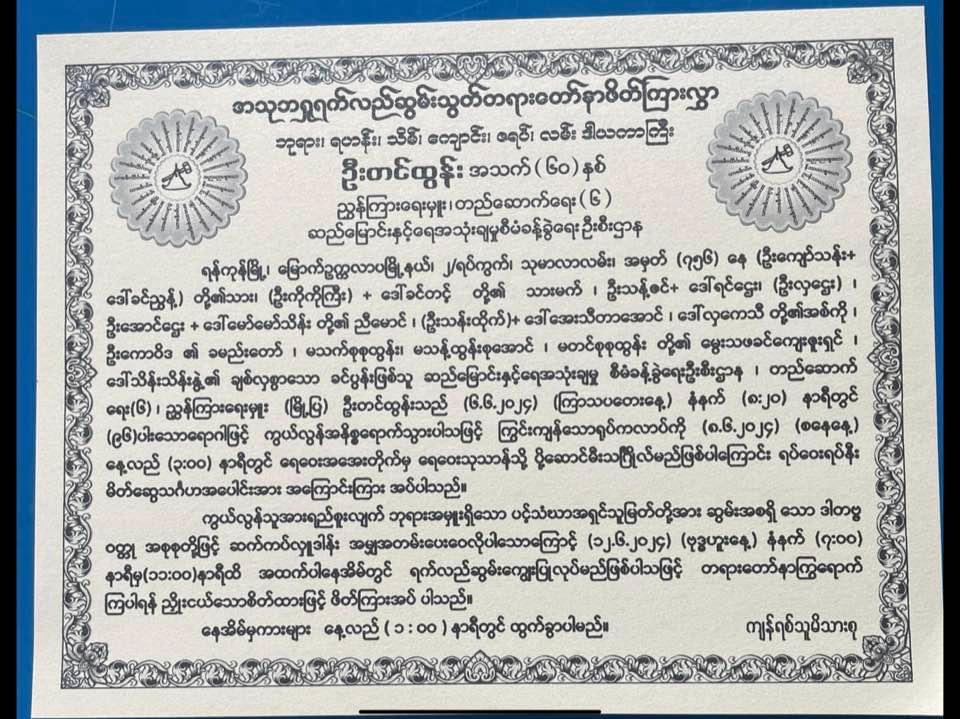 အသုဘရှုရက်လည်ဆွမ်းသွတ်တရားတော်နာဖိတ်ကြားလွှာ
ဘုရား၊ ရဟန်း၊ သိမ်၊ ကျောင်း၊ ဇရပ်၊ လမ်း ဒါယကာကြီး
ဦးတင်ထွန်း အသက် (၆၀) နှစ်
ညွှန်ကြားရေးမှူး၊ တည်ဆောက်ရေး (၆)
ဆည်မြောင်းနှင့်ရေအသုံးချမှုစီမံခန့်ခွဲရေးဦးစီးဌာန
ရန်ကုန်မြို့၊ မြောက်ဥက္ကလာပမြို့နယ်၊ ၂/ရပ်ကွက်၊ သုမာလာလမ်း၊ အမှတ် (၇၅၆) နေ (ဦးကျော်သန်း+
ဒေါ်ခင်ညွန့်) တို့၏သား၊ (ဦးကိုကိုကြီး) + ဒေါ်ခင်တင့် တို့၏ သားမက် ၊ ဦးသန့်ဇင်+ ဒေါ်ရင်ဌေး၊ (ဦးလှဌေး) ၊
ဦးအောင်ဌေး + ဒေါ်မော်မော်သိန်း တို့၏ ညီမောင် ၊ (ဦးသန်းထိုက်)+ ဒေါ်အေးသီတာအောင် ၊ ဒေါ်လှကေသီ တို့၏အစ်ကို ၊
ဦးကောဝိဒ ၏ ခမည်းတော် ၊ မသက်စုစုထွန်း၊ မသန့်ထွန်းစုအောင် ၊ မတင်စုစုထွန်း တို့၏ မွေးသဖခင်ကျေးဇူးရှင် ၊
ဒေါ်သိန်းသိန်းနွဲ့၏ ချစ်လှစွာသော ခင်ပွန်းဖြစ်သူ ဆည်မြောင်းနှင့်ရေအသုံးချမှု စီမံခန့်ခွဲရေးဦးစီးဌာန ၊ တည်ဆောက်
ရေး(၆) ၊ ညွှန်ကြားရေးမှူး (မြို့ပြ) ဦးတင်ထွန်းသည် (၆.၆.၂၀၂၄) (ကြာသပတေးနေ့) နံနက် (၈:၂၀) နာရီတွင်
(၉၆)ပါးသောရောဂါဖြင့် ကွယ်လွန်အနိစ္စရောက်သွားပါသဖြင့် ကြွင်းကျန်သောရုပ်ကလာပ်ကို (၈.၆.၂၀၂၄) (စနေနေ့)
နေ့လည် (၃:၀၀) နာရီတွင် ရေဝေးအအေးတိုက်မှ ရေဝေးသုသာန်သို့ ပို့ဆောင်မီးသင်္ဂြိုလ်မည်ဖြစ်ပါကြောင်း ရပ်ဝေးရပ်နီး
မိတ်ဆွေသင်္ဂဟအပေါင်းအား အကြောင်းကြား အပ်ပါသည်။
ကွယ်လွန်သူအားရည်စူးလျက် ဘုရားအမှူးရှိသော ပင့်သံဃာအရှင်သူမြတ်တို့အား ဆွမ်းအစရှိ သော ဒါတဗ္ဗ
ဝတ္ထု အစုစုတို့ဖြင့် ဆက်ကပ်လှူဒါန်း အမျှအတမ်းပေးဝေလိုပါသောကြောင့် (၁၂.၆.၂၀၂၄) (ဗုဒ္ဓဟူးနေ့) နံနက် (၇:၀၀)
နာရီမှ(၁၁:၀၀)နာရီထိ အထက်ပါနေအိမ်တွင် ရက်လည်ဆွမ်းကျွေးပြုလုပ်မည်ဖြစ်ပါသဖြင့် တရားတော်နာကြွရောက်
ကြပါရန် ညှိုးငယ်သောစိတ်ထားဖြင့် ဖိတ်ကြားအပ် ပါသည်။
နေအိမ်မှကားများ နေ့လည် ( ၁ : ၀၀ ) နာရီတွင် ထွက်ခွာပါမည်။ ကျန်ရစ်သူမိသားစု